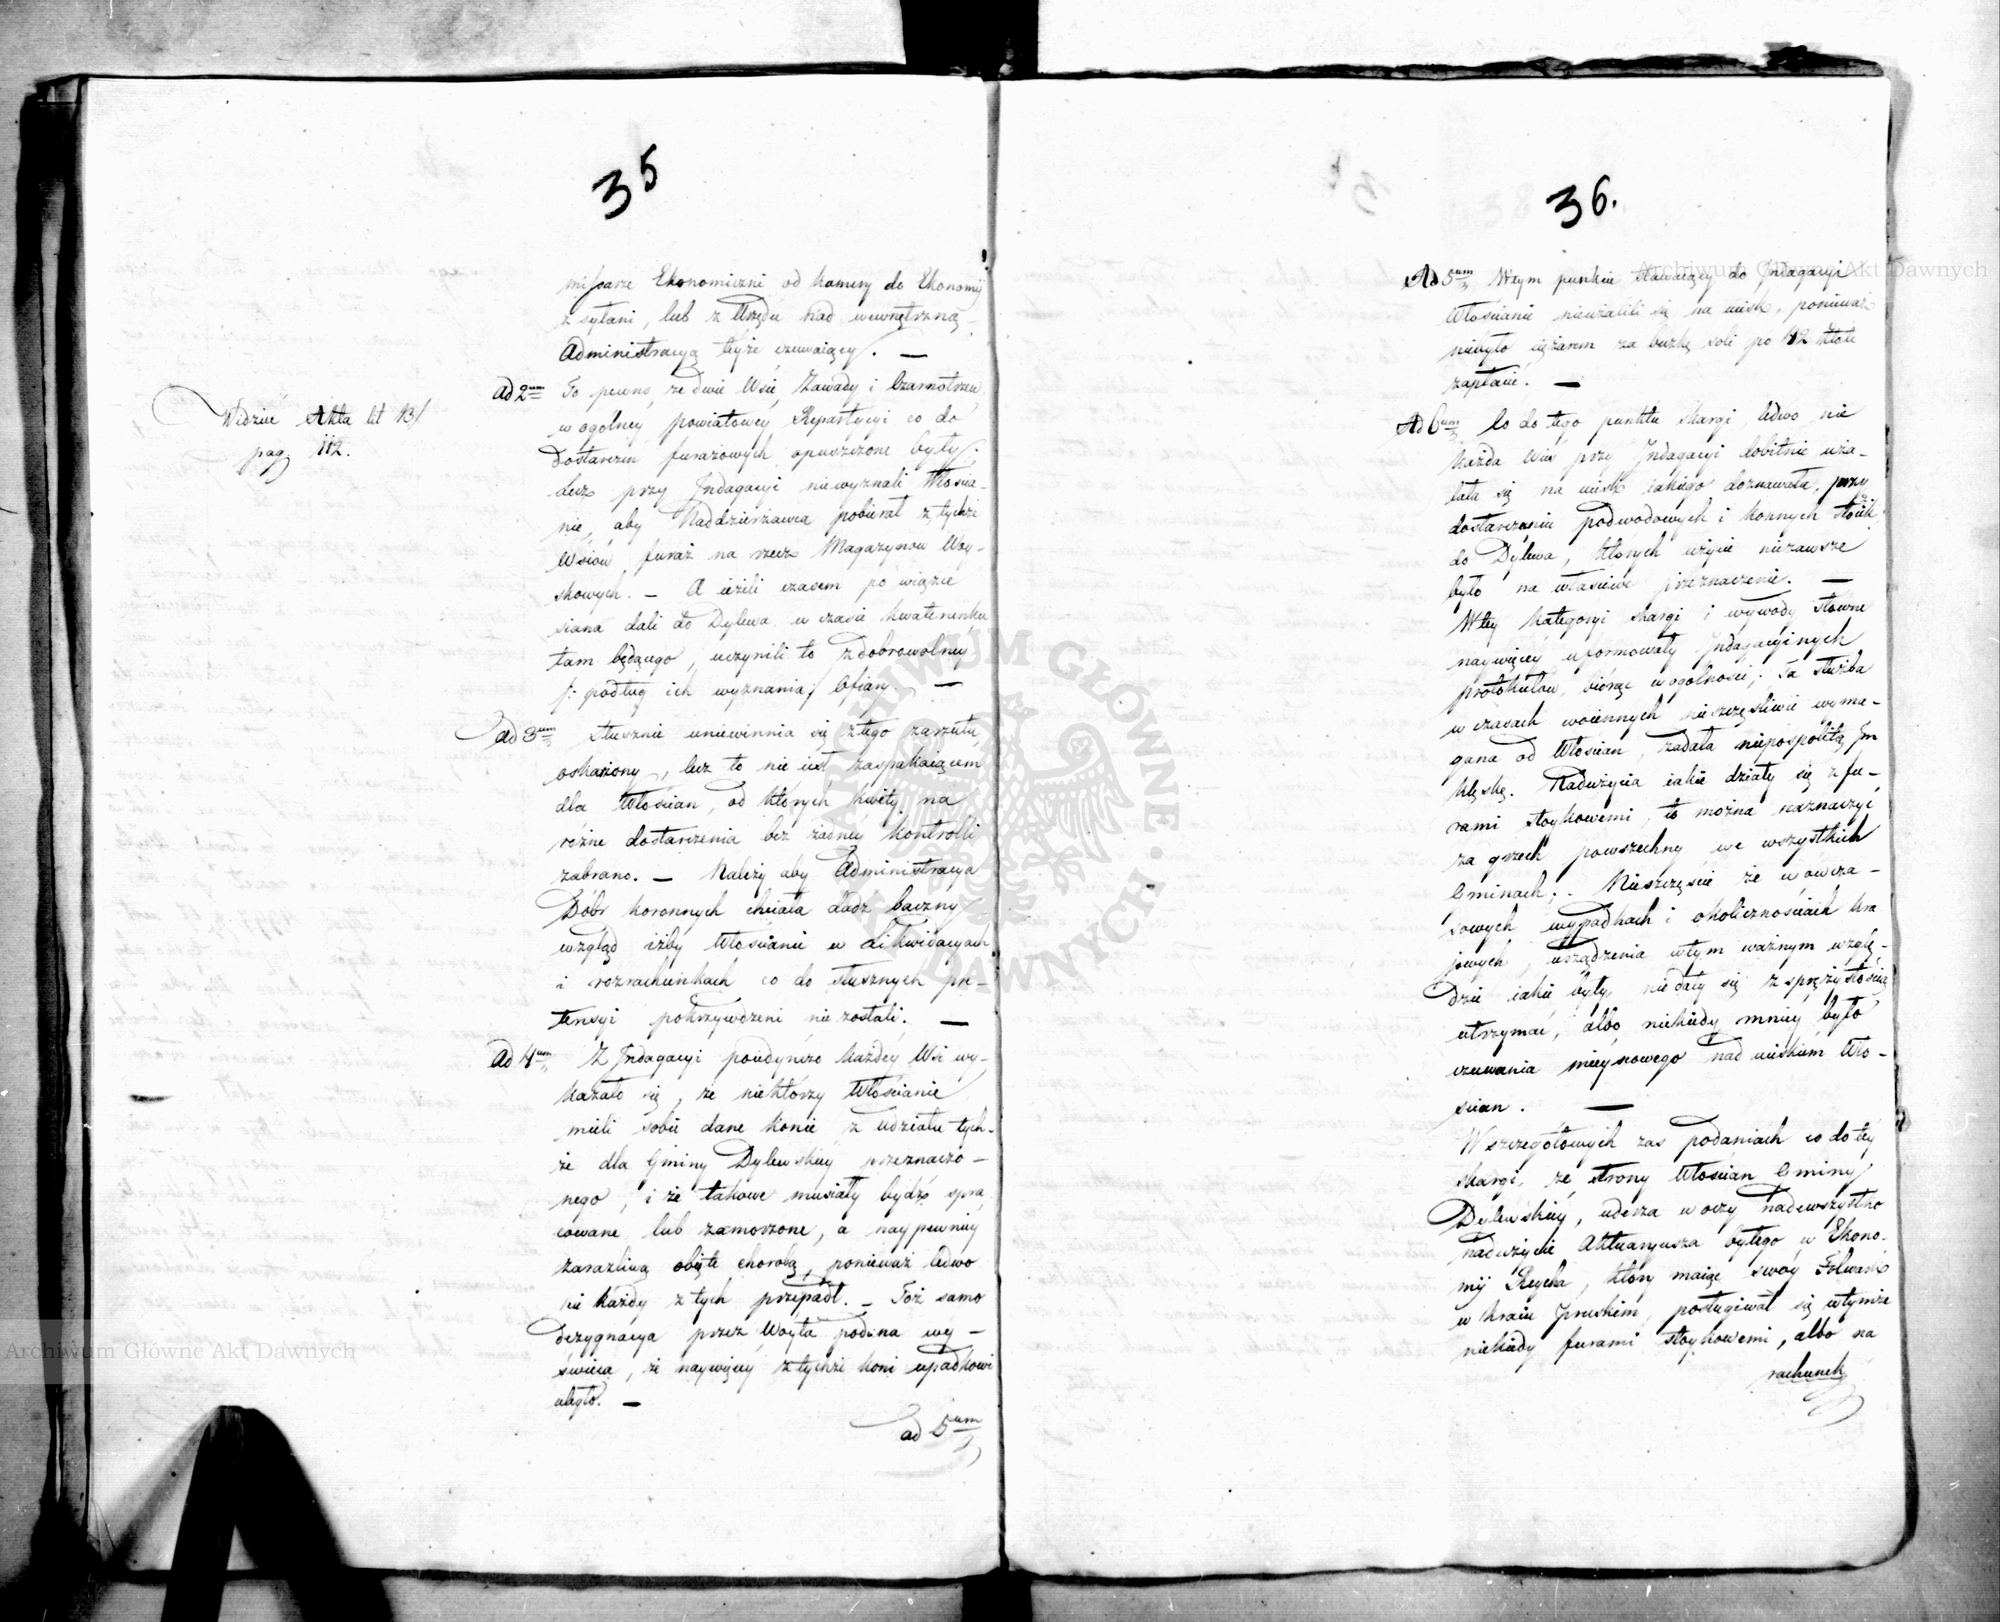 35
missarze Ekonomiczni od Kamery do Ekonomij
zsyłani, lub z Urzędu nad wewnętrzną
Administracyą teyże czuwaiący. —
Widzieć Akta lit B/
pag. 112.
ad 2um To pewno, że dwie Wsie, Zawady i Czarnotrzew
w ogólney powiatowey Repartycyi co do
Dostarczeń furażowych opuszczone były;
lecz przy Indagacyi niewyznali Włościa-
nie, aby Naddzierżawca pobierał z tychże
Wsiów furaż na rzecz Magazynow Woy-
skowych. — A ieżeli czasem po wiązce
siana dali do Dylewa w czasie kwaterunku
tam będącego, uczynili to z dobrowolney
/: podług ich wyznania:/ Ofiary. —
ad 3um Słusznie uniewinnia się ztego zarzutu
oskarżony, lecz to nie iest zaspakaiącem
dla Włościan, od których kwity na
rożne dostarczenia bez żadney kontrolli
zabrano. — Należy aby Administracya
Dóbr koronnych chciała dadź baczny
wzgląd iżby Włościanie w Likwidacyach
i rozrachunkach co do słusznych pre-
tensyi pokrzywdzeni nie zostali. —
ad 4um Z Indagacyi poiedynczo każdey Wsi wy-
kazało się, że niektórzy Włościanie
mieli sobie dane konie z udziału tych-
że dla Gminy Dylewskiey przeznaczo-
nego, i że takowe musiały bydź spra
cowane lub zamorzone, a naypewniey
zaraźliwą obięte chorobą, ponieważ ledwo
nie każdy z tych przepadł. — Toż samo
dezygnacya przez Woyta podana wy-
świeca, że naywięcey z tychże koni upadkowi
uległo. —
ad 5um
36.
Ad 5um Wtym punkcie stawaiący do Indagacyi
Włościanie nieużalili się na ucisk, ponieważ
niebyło ciężarem za beczkę soli po 42 złote
zapłacić. —
Ad 6um Co do tego punktu skargi, ledwo nie
każda Wieś przy Indagacyi dobitnie uża-
lała się na ucisk iakiego doznawała, przy
dostarczaniu podwodowych i konnych stoiek
do Dylewa, których użycie niezawsze
było na właściwe przeznaczenie. —
Wtey kategoryi skargi i wywody słowne
naywięcey uformowały Indagacyinych
protokułow, biorąc wogolności; Ta służba
w czasach woiennych nieszczęśliwie wyma-
gana od Włościan, zadała niepospolitą Im
klęskę. Nadużycia iakie działy się z fu-
rami stoykowemi, to można naznaczyć
za grzech powszechny we wszystkich
Gminach; Nieszczęście że w owcza-
sowych wypadkach i okolicznościach kra
jowych, urządzenia wtym ważnym wzglę-
dzie iakie były, niedały się z sprężystością
utrzymać, albo niekiedy mniey było
czuwania mieyscowego nad uciskiem Wło-
ścian. —
W szczegółowych zaś podaniach co do tey
skargi, ze strony Włościan Gminy
Dylewskiey, uderza w oczy nadewszystko
nadużycie Aktuaryusza byłego w Ekono-
mij Reycha, który maiąc swóy Folwark
w kraiu pruskim, posługiwał się wtymże
niekiedy furami stoykowemi, albo na
rachunek
Archiwum Główne Akt Dawnych
Archiwum Główne Akt Dawnych
ARCHIWUM GŁÓWNE AKT DAWNYCH